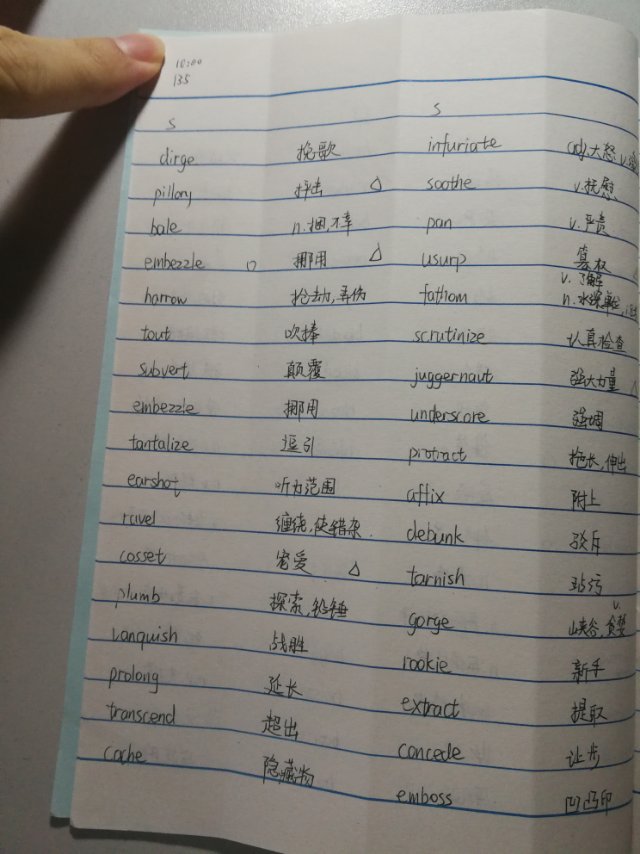 10:00
135
S
dirge 挽歌
pillory 抨击
bale n.捆,不幸
embezzle 挪用
harrow 抢劫,弄伤
tout 吹捧
subvert 颠覆
embezzle 挪用
tantalize 逗引
earshot 听力范围
ravel 缠绕,使错杂.
cosset 宠爱
plumb 探索,铅锤
vanquish 战胜
prolong 延长
transcend 超出
cache 隐藏物
S
infuriate adj.大怒 v.
soothe v.抚慰
pan v.严责
usurp 篡权
fathom v.了解 n.水深单位
scrutinize 认真检查
juggernaut 强大力量
underscore 强调
protract 拖长,伸出
affix 附上
debunk 驳斥
tarnish 玷污
gorge 峡谷,v.贪婪
rookie 新手
extract 提取
concede 让步
emboss 凹凸印